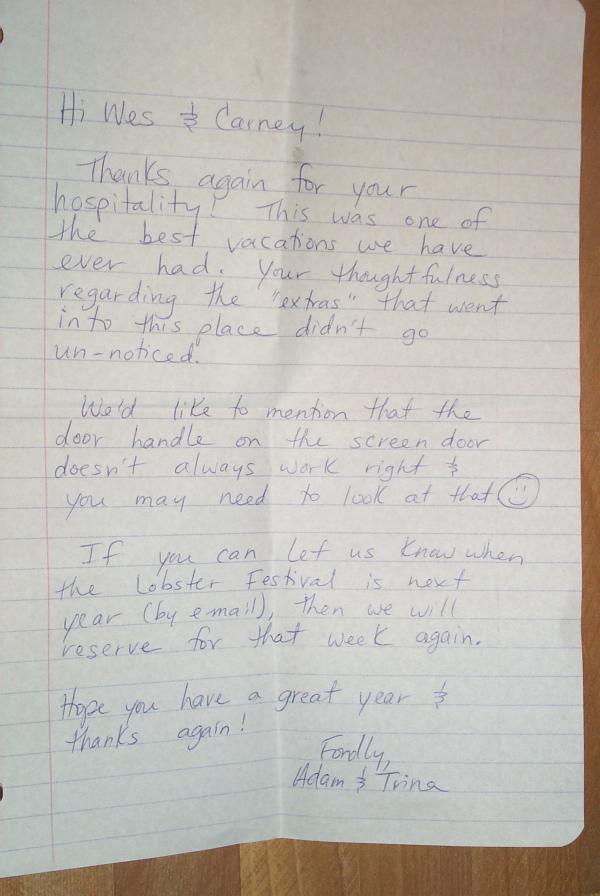 Hi Wes & Carney!
Thanks again for your
hospitality! This was one of
the best vacations we have
ever had. Your thoughtfulness
regarding the "extras" that went
into this place didn't go
un-noticed.
We'd like to mention that the
door handle on the screen door
doesn't always work right &
you may need to look at that ☺
If you can let us know when
the Lobster Festival is next
year (by email), then we will
reserve for that week again.
Hope you have a great year &
thanks again!
Fondly,
Adam & Trina